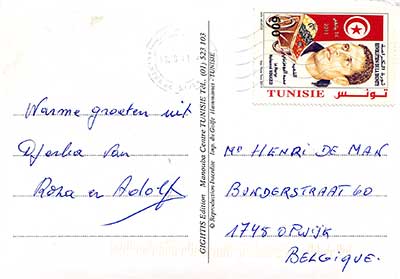 Warme groeten uit
Djerba van
Roza en Adolf
GIGHTIS Edition Manouba Centre TUNISIE Tél. (01) 523 103
© Reproduction Interdite Imp. du Golfe (Hammamet) - TUNISIE
600
2011
TUNISIE تونس
Mr HENRI DE MAN
BUNDERSTRAAT 60
1745 OPWIJK
BELGIQUE.